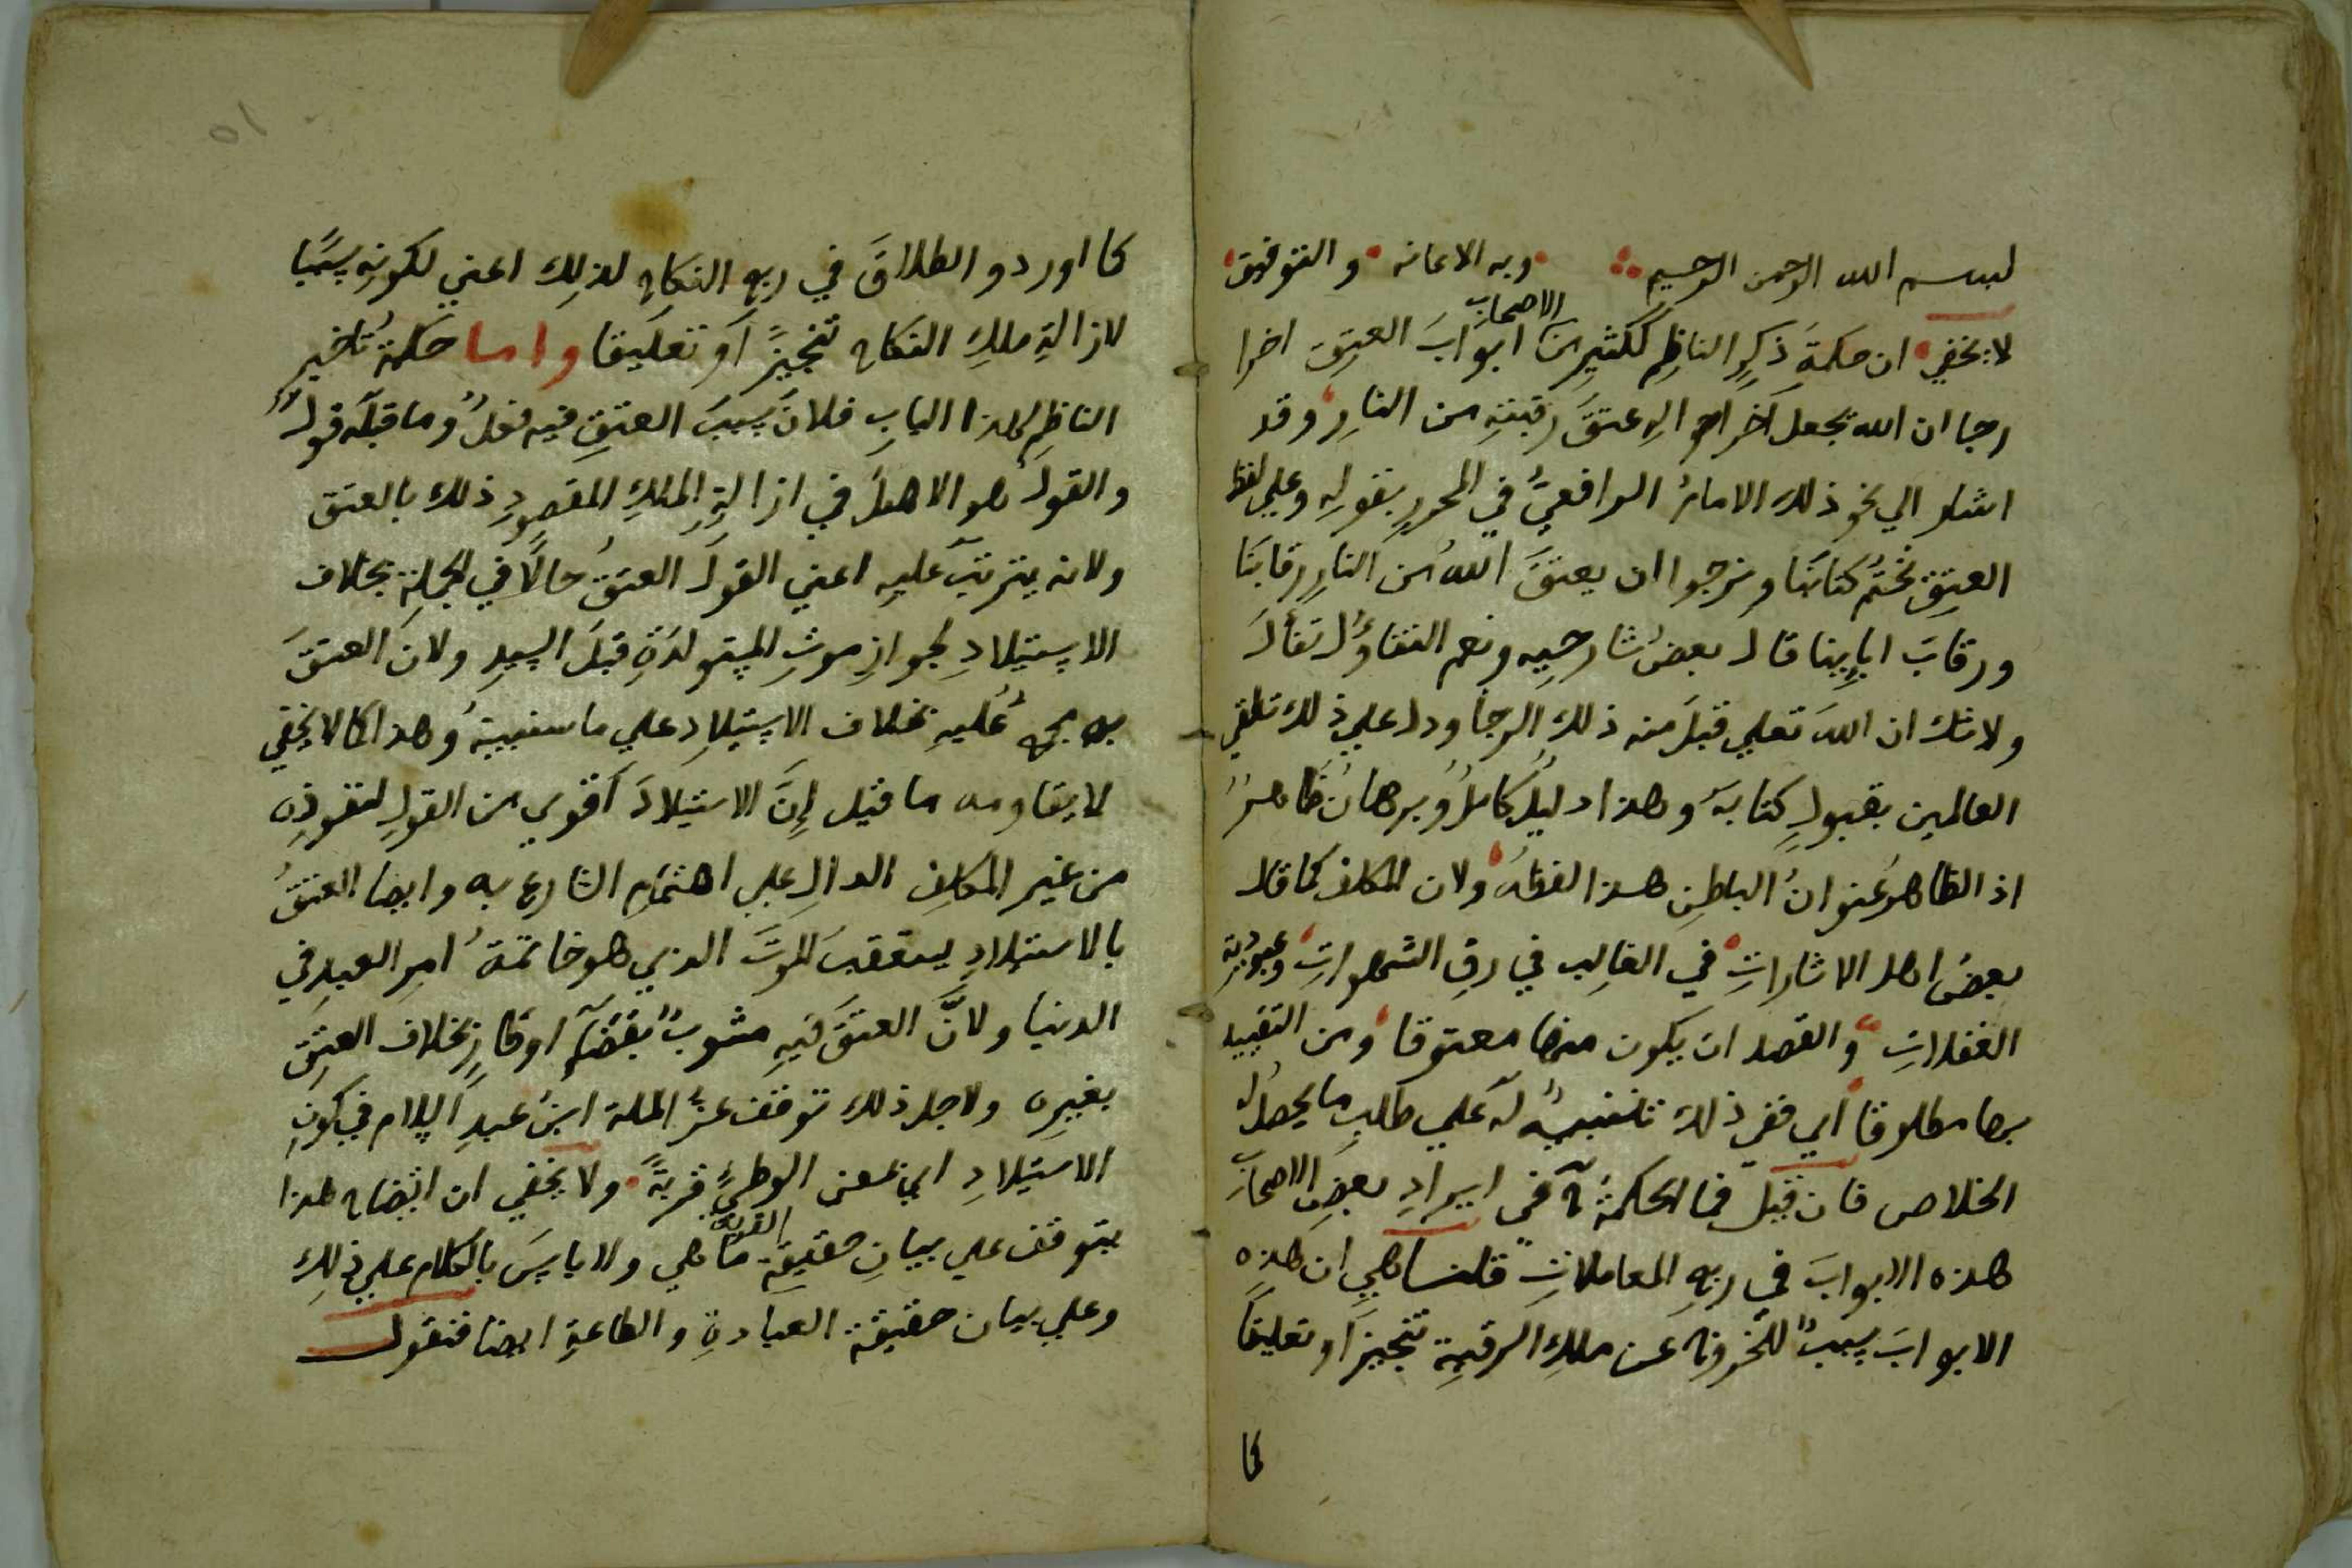 بسم الله الرحمن الرحيم وبه الاعانه والتوفيق
لا يخفي ان حكمةَ ذكرِ الناظِمِ ككثيرٍ من الاصحاب ابوابَ العتِق اخرا
رجا ان الله يجعل آخر احوالِه عتقَ رقبتِهِ من النارِ وقد
اشار الي نحو ذلك الامامُ الرافعيُّ في المحررِ بقولِه وعلي لفظ
العتِق نختمُ كتابَنَا ونرجوا ان يعتقَ اللهُ من النارِ رقابَنَا
ورقابَ ابايِنا قال بعضُ شارحيِه ونعم التفاوُلُ تفألَ
ولا شك ان اللهَ تعلي قبلَ منه ذلك الرجا ودل علي ذلك تلقي
العالمين بقبولِ كتابهِ وهذا دليلٌ كاملٌ وبرهانٌ ظاهرٌ
اذ الظاهرُ عنوانُ الباطنِ هذا لفظُه ولان المكلف كما قال
بعضُ اهل الاشاراتِ في الغالِبِ في رقِ الشهواتِ وعبوديةِ
الغفلاتِ والقصد ان يكون منها معتوقا ومن التقييد
بها مطلوقا اي ففي ذلك تنبيهٌ له علي طلبِ ما يحصلُ له
الخلاص فان قيل فما الحكمةُ في ايرادِ بعضِ الاصحابِ
هذه الابوابَ في ربعِ المعاملاتِ قلنا هي ان هذِه
الابوابَ سببٌ للخروج عن ملكِ الرقبةِ تنجيزاً او تعليقاً
كما
كما اوردو الطلاقَ في ربع النكاح لذلِك اعني لكونِهِ سببًا
لازالةِ ملكِ النكاح تنجيزً اَو تعليقا واما حكمةُ تاخيرِ
الناظِمِ لهذا البابِ فلانَ سببَ العتقِ فيه فعلٌ وما قبلَه قولٌ
والقول هو الاصلُ في ازالةِ الملكِ المقصودِ ذلك بالعتق
ولانه يترتبُ عليهِ اعني القولَ العتقُ حالًا في الجملةِ بخلاف
الاستيلادِ لجوازِ موتِ المستولدَةِ قبلَ السيدِ ولانَ العتقَ
به مجمعٌ عليهِ بخلاف الاستيلادِ علي ما سنبينهُ وهذا كما لا يخفي
لا يقاومه ما قيل إنَّ الاستيلادَ اَقوي من القولِ لنفوذِه
من غير المكلفِ الدالِ علي اهتمامِ الشارع به وايضا العتقُ
بالاستيلادِ يستعقبُ الموتَ الذي هو خاتمةُ امرِ العبدِ في
الدنيا ولانَّ العتقَ فيهِ مشوبٌ بقضآءِ اوطارٍ بخلاف العتِقِ
بغيرِه ولاجل ذلك توقف عزُ الملة ابنُ عبدِ السلام في كونِ
الاستيلادِ اي عن الوطئِ قربةً ولا يخفي ان ايضاح هذا
يتوقف علي بيانِ حقيقةِ القربة ما هي ولا باسَ بالكلام علي ذلِك
وعلي بيان حقيقة العبادةِ والطاعةِ ايضا فنقول